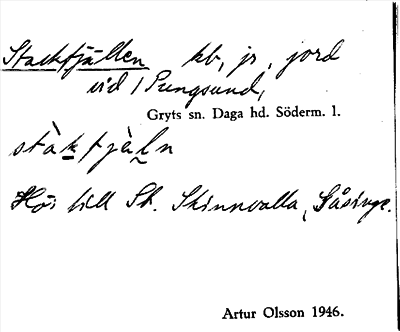 Stackfjällen kb, jr, jord
vid / Pungsund,
Gryts sn. Daga hd. Söderm. l.
stàkfjæ̀ln
Hör till St. Skinnvalla,
Artur Olsson 1946.